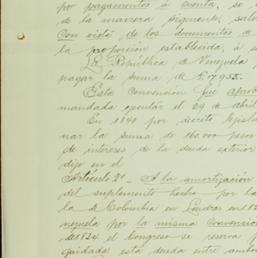 por pagamentos à cuenta, se
de la manera siguiente, salvo
con vista de los documentos de
la proporción establecida, á s
La República de Venezuela
pagar la suma de £ 7955.
Este Convención fué aprob
mandada ejecutar el 29 de abril
En 1840 por decreto legisla
nar la suma de 160.000 pesos
de intereses de la deuda exterior
dijo en el
Artículo 2º - A la amortización
del suplemento hecho por la
la de Colombia en Londres en 182
nezuela por la misma Convención
de 1834 el Congreso se reserva p
quidada esta deuda entre ambo